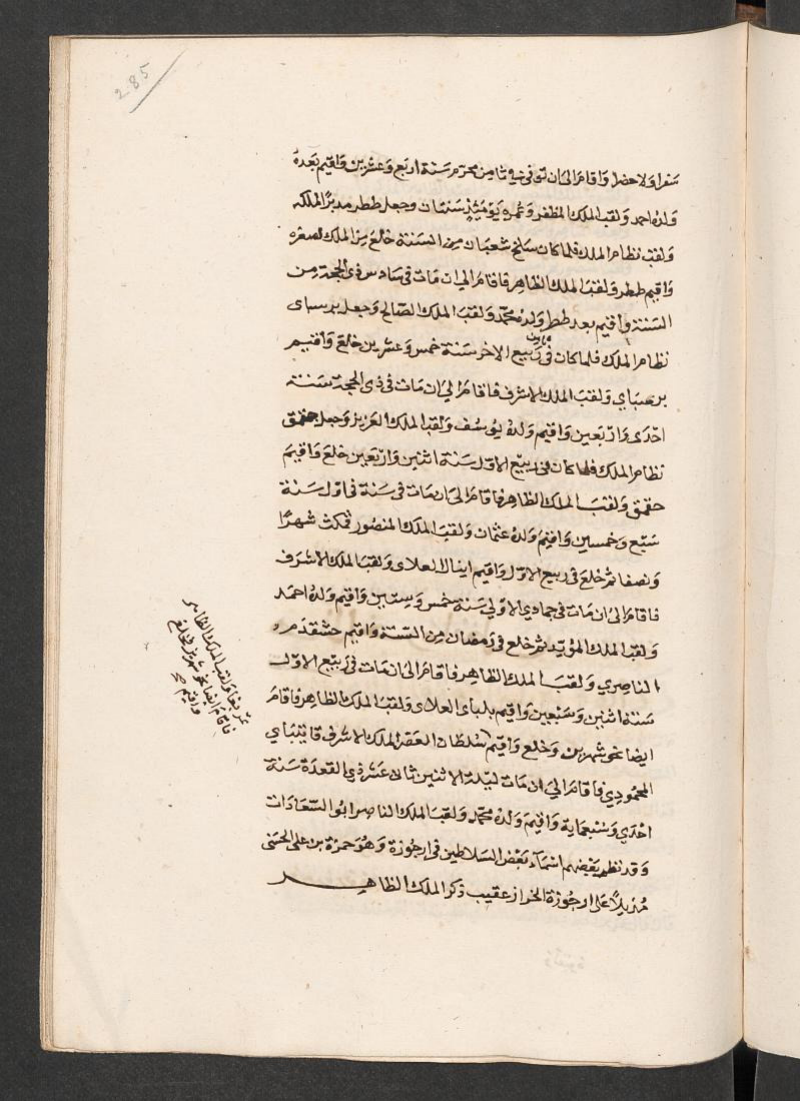 285
سفرا ولا حضرا واقام الى ان توفى في ثامن محرم سنة اربع وعشرين واقيم بعده
ولده احمد ولقب الملك المظفر وعمره يومئذ سنتان وجعل ططر مدبر المملكه
ولقب نظام الملك فلما كان سلخ شعبان من السنة خلع من الملك لصغره
واقيم ططر ولقب الملك الظاهر فاقام الى ان مات في سادس ذى الحجة من
السنة واقيم بعد ططر ولده محمد ولقب الملك الصالح وجعل برسباى
نظام الملك فلما كان في ربيع الاخر سنة خمس وعشرين خلع واقيم
برسباي ولقب الملك الاشرف فاقام الى ان مات في ذى الحجة سنة
احدى واربعين واقيم ولده يوسف ولقب الملك العزيز وجعل جقمق
نظام الملك فلما كان في ربيع الاول سنة اثنين واربعين خلع واقيم
جقمق ولقب الملك الظاهر فاقام الى ان مات في سنة في اول سنة
سبع وخمسين واقيم ولده عثمان ولقب الملك المنصور فمكث شهرا
ونصفا ثم خلع في ربيع الاول واقيم اينال العلاى ولقب الملك الاشرف
فاقام الى ان مات في جمادي الاولي سنة خمس وستين واقيم ولده احمد
ولقب الملك المؤيد ثم خلع في رمضان من السنة واقيم خشقدم
الناصري ولقب الملك الظاهر فاقام الى ان مات في ربيع الاول
سنة اثنين وسبعين واقيم بلباى العلاى ولقب الملك الظاهر فاقام
ايضا نحو شهرين وخلع واقيم سلطان العصر الملك الاشرف قايتباي
المحمودي فاقام الى ان مات ليلة الاثنين ثانى عشر ذي القعدة سنة
احدي وتسعماية واقيم ولده محمد ولقب الملك الناصر ابو السعادات
وقد نظم بعضهم اسماء بعض السلاطين في ارجوزة وهو حمزة بن على الحسنى
مذيلا على ارجوزة الخراز عقيب ذكر الملك الظاهر
تمربغا ولقب الملك الظاهر
فاقام ايضا نحو شهرين وخلع
واقيم